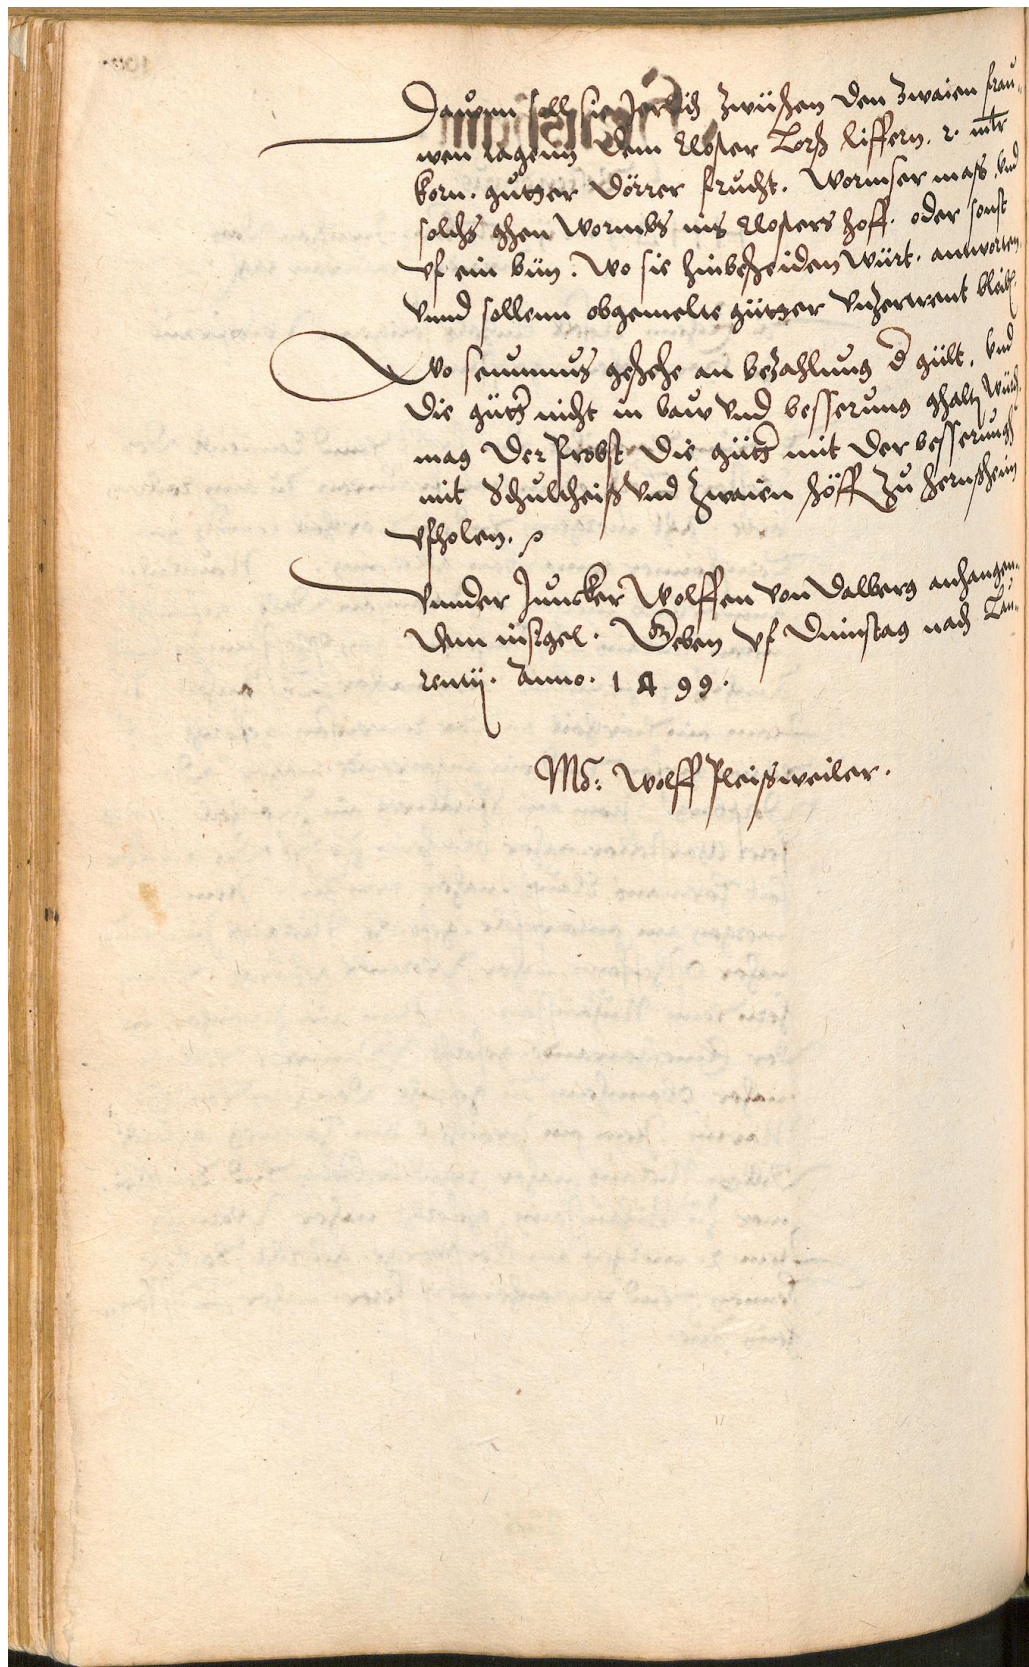 Dauon soll sie Jerlich zwüschen den Zwaien frau-
wen tagenn dem Closter Lorsch liffern. x. mltr
korn. gutter dörrer frucht. Wormser mass, vnd
solchs ghen Wormbs ins Closters hoff. oder sonst
vf ein bün. Wo sie hinbescheiden würt. antworten
vnnd sollenn obgemelte gütter vnzertrent bleib.
Wo seumnus geschehe an bezahlung d gült. vnd
die gütt nicht in bauw vnd besserung ghalt würd
mag der Probst die gütt mit der besserung
mit Schultheiss vnd Zwaien höff zu Hernssheim
vfholen.
Vnnder Juncker Wolffen von Dalberg anhangen-
dem insigel. Geben vf Dinnstag nach Lau-
rentij. Anno. 1499.
Ms: Wolff Pleissweiler.